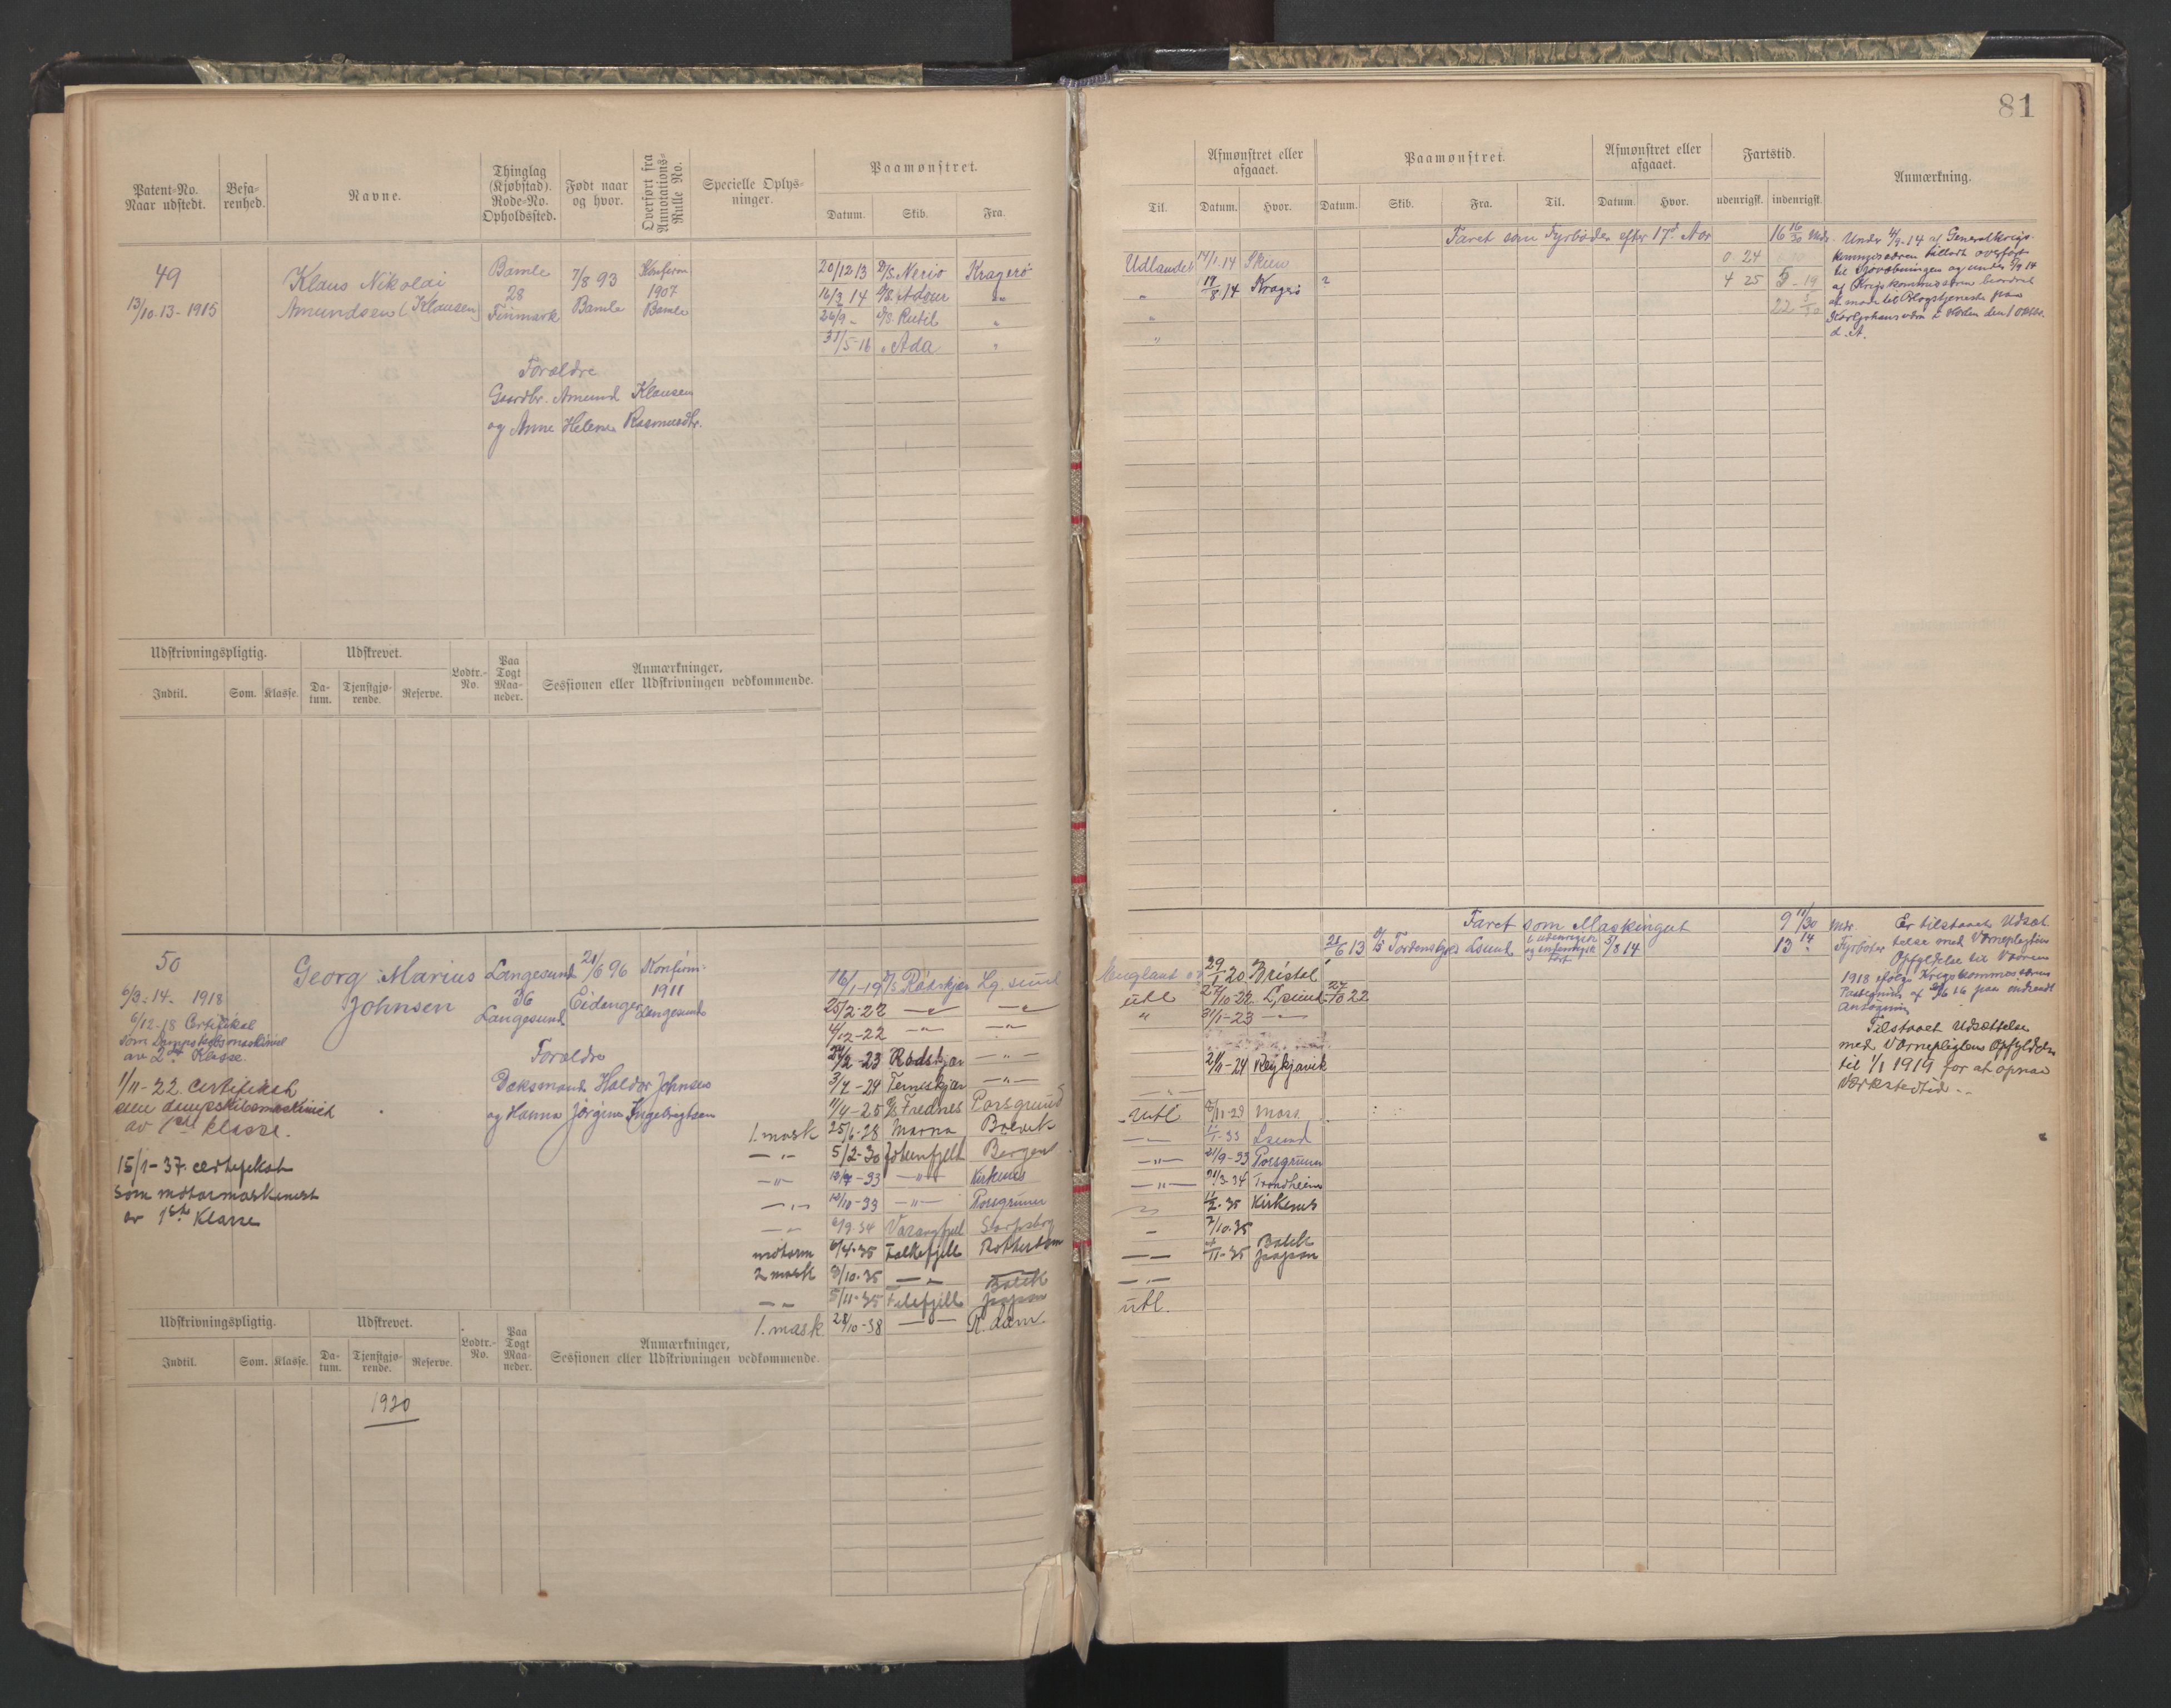 81
Patent-No. Naar udstedt.
Befarenhed.
Navne.
Thinglag (Kjøbstad). Rode-No. Opholdssted.
Født naar og hvor.
Overført fra Annotations-Rulle No.
Specielle Oplysninger.
Paamønstret.
Datum. Skib. Fra.
Til.
Afmønstret eller afgaaet.
Datum. Hvor.
Paamønstret.
Datum. Skib. Fra. Til.
Afmønstret eller afgaaet.
Datum Hvor.
Fartstid.
udenrigsk. indenrigsk.
Anmærkning.
49
13/10.13-1915
Klaus Nikolai
Amundsen (Klausen)
Bamle
28
Finmark
7/8 93
Bamle
Konfirm
1907
Bamle
Forældre
Gaardbr. Amund Klausen
og Anne Helene Rasmusdtr.
20/12 13 D/S. Nerio Kragerø
16/3 14
26/9 - D/S. Rutil "
31/5-16 " Ada "
Udlandet 14/1.14 Skien
" 19/8.14 Kragerø
"
"
Faret som Fyrbøder efter 17d Aar
16 16/30 Mdr.
0 24
4 25
Under 4/9-14 af Generalkrigs-
Udskrivningspligtig.
Indtil. Som. Klasse.
Udskrevet.
Datum. Tjenstgjørende. Reserve.
Lodtr.-No.
Paa Togt Maaneder.
Anmærkninger, Sessionen eller Udskrivningen vedkommende.
50
6/3-14- 1918
6/12-18 Certifikat
som Dampskibsmaskinist
av 2den Klasse.
1/11-22 certifikat
som dampskibsmaskinist
av 1ste klasse.
15/1-37. certifikat
som motormaskinist
av 1ste Klasse
Georg Marius
Johnsen
Langesund
36
Langesund
21/6 96
Eidanger
Konfirm.
1911
Langesund
Forældre
Dæksmand Haldor Johnsen
og Hanna Jørgine Ingebrigtsen
16/1-19 D/S Rødskjær Lg.sund
25/2-22
4/12-22 -"- -"-
Rødskjær -"-
3/4-24 Terneskjær -"-
11/4-25 D/S Frednes Porsgrund
1. mask 25/6-28 Marna Brevik
-"- 5/2-30 Jotunfjell Bergen
-"- -"- Kirkenes
-"- 10/10-33 -"- Porsgrunn
-"- 6/9 34 Varangfjell Sarpsborg
motorm 6/4-35 Falkefjell Rotterdam
2 mask 9/10.35 -"-
-"- 5/11-35 Filefjell Japan
1. mask 28/10-38 -"- R.dam.
29/1 20 Bristol
utl 27/10-22 L.sund
" 31/1-23 -"-
2/11-24 Reykjavik
Utl 8/11-29 Moss
-"- Lsund
-"- 21/9-33 Porsgrunn
-"- 21/3-34 Trondheim
11/2.35 Kirkenes
7/10.35
-"- 11-35 Japan
-"-
utl.
Faret som Maskingut
9 11/30 Mdr.
28/6 13 D/S Tordenskjold Lsund i udenrigsk og indenrigsk Fart 5/8 14
13 14 Fyrbøter
27/10 22
Er tilstaaet Udsæt-
telse med Værnepligtens
Opfyldelse til Vaaren
1918 ifølge Krigskommissærens
Paategning af 26/6 16 paa indsendt
Ansøgning
Tilstaaet Udsættelse
med Værnepligtens Opfyldelse
til 1/1 1919 for at opnaa
Værkstedtid --
Udskrivningspligtig.
Indtil. Som. Klasse.
Udskrevet.
Datum. Tjenstgjørende. Reserve.
Lodtr.-No.
Paa Togt Maaneder.
Anmærkninger, Sessionen eller Udskrivningen vedkommende.
1920